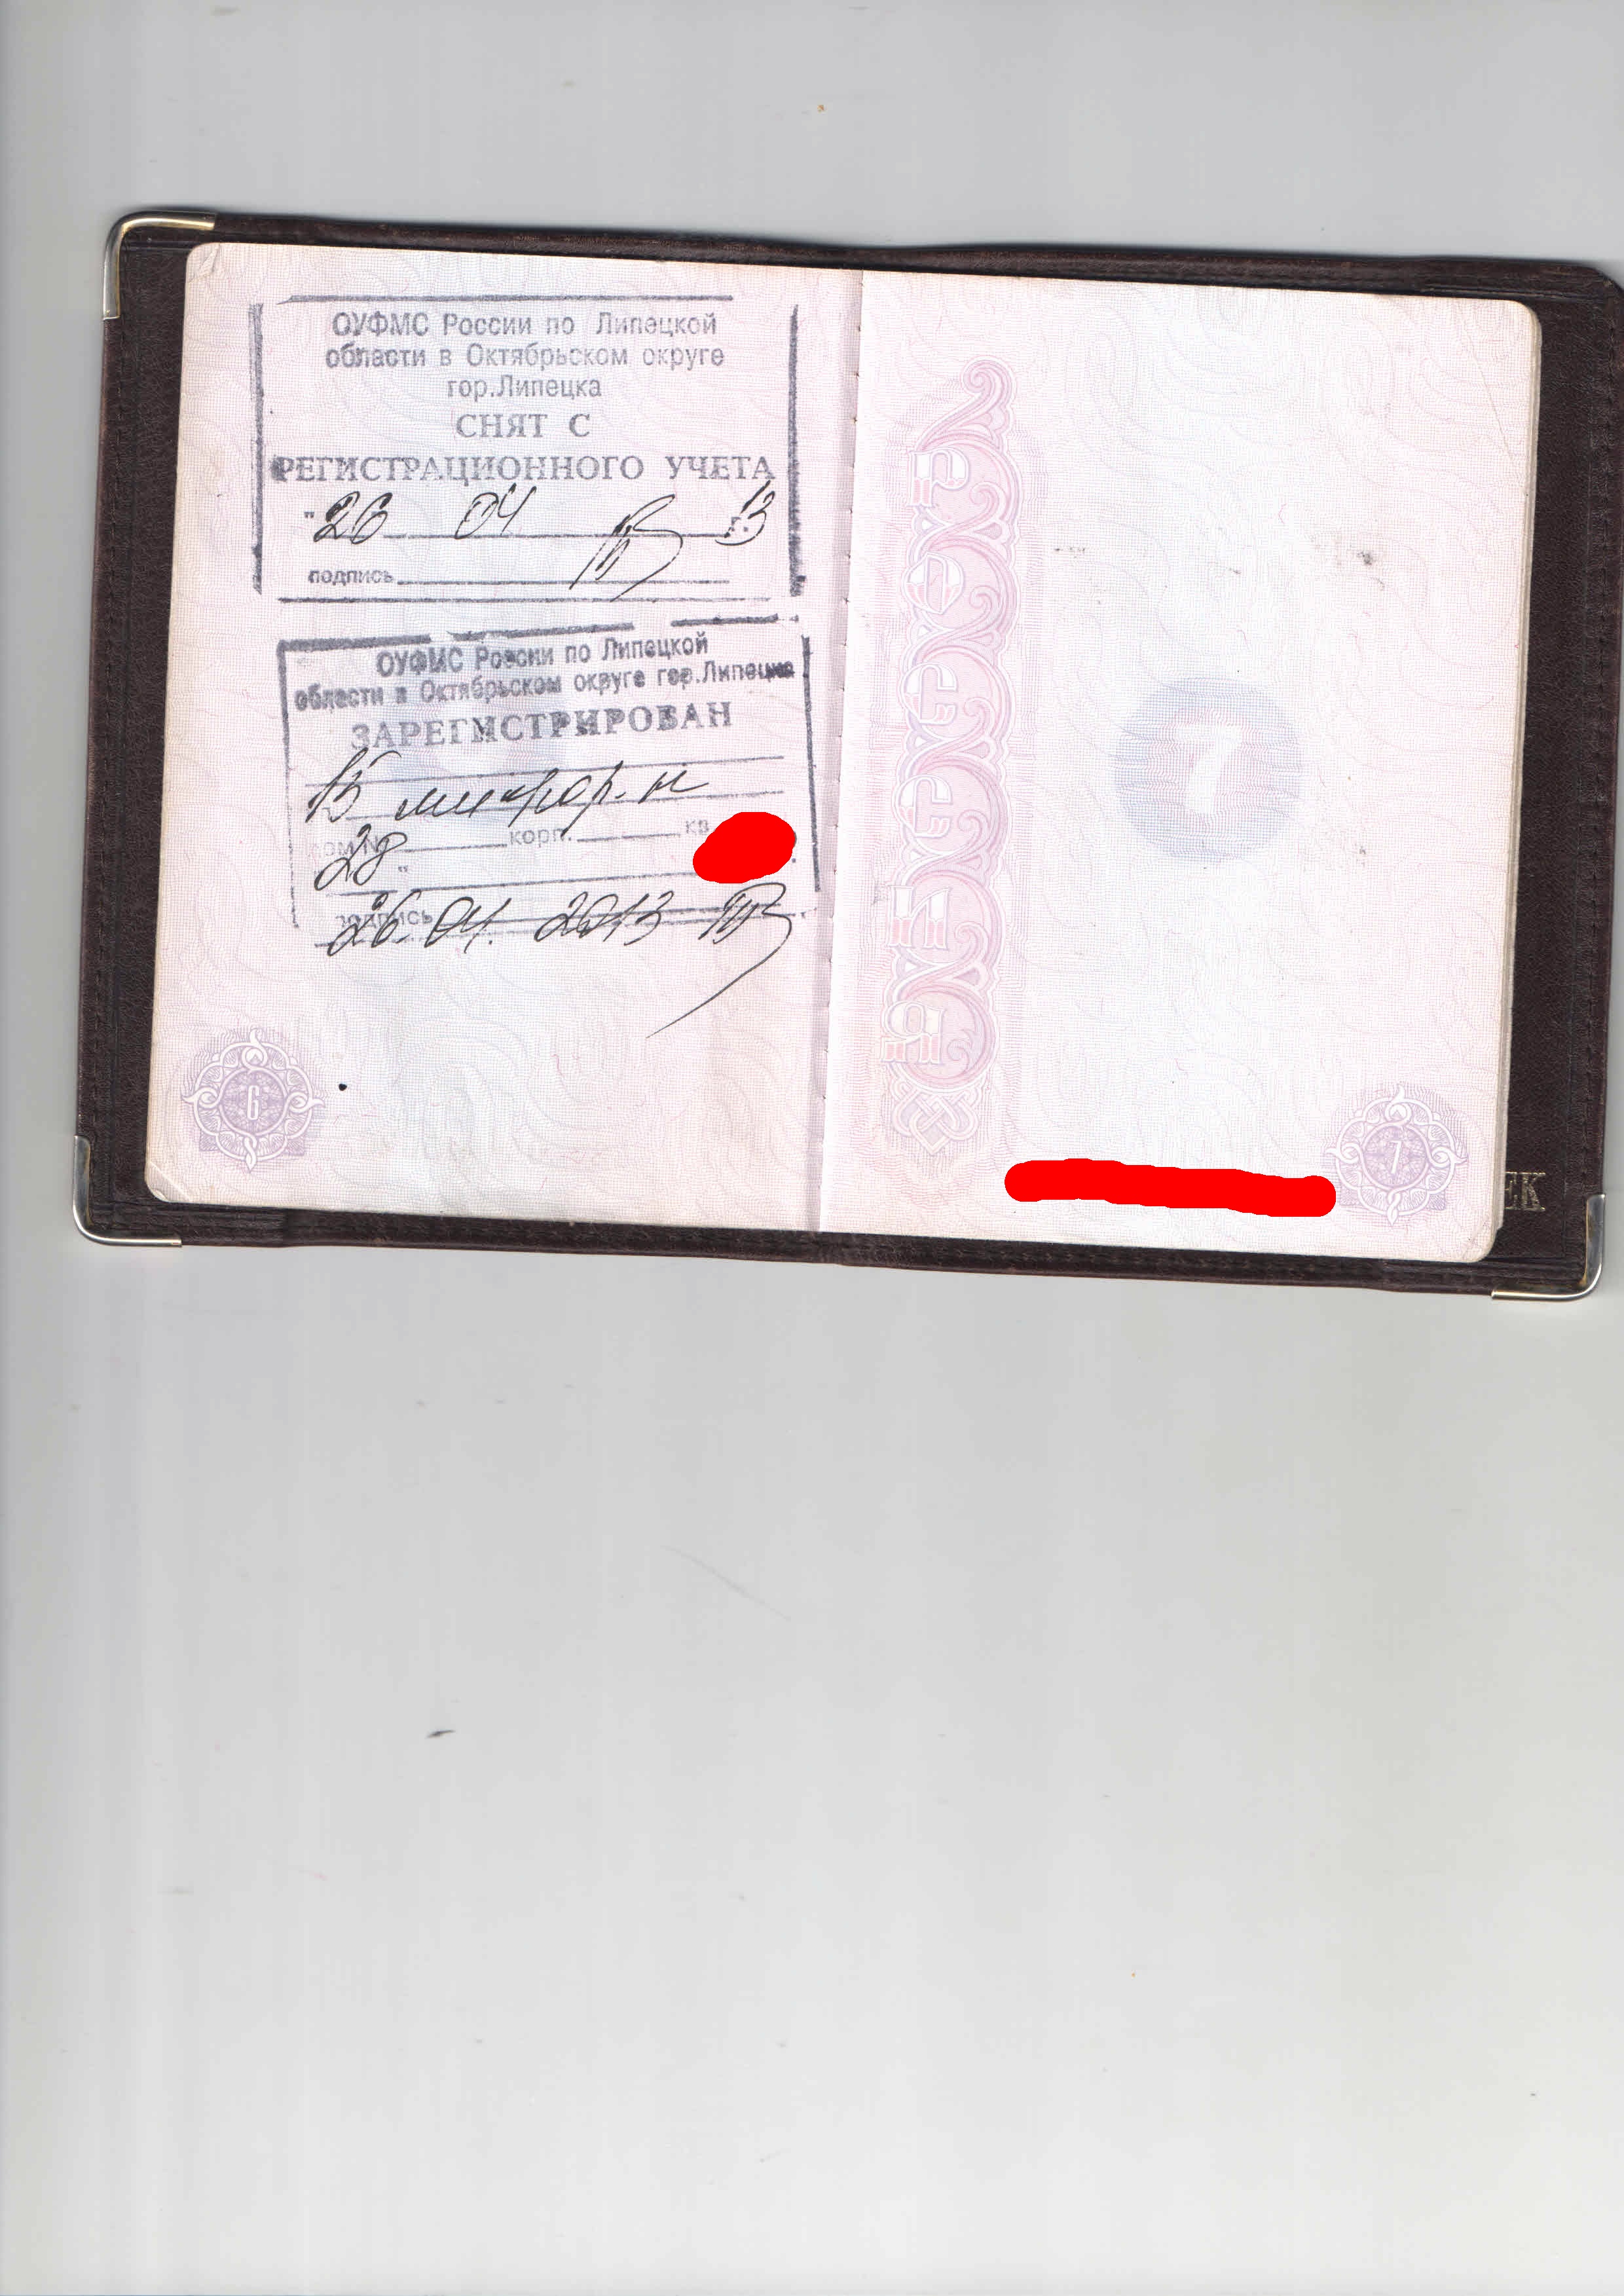 ОУФМС России по Липецкой
области в Октябрьском округе
гор.Липецка
СНЯТ С
РЕГИСТРАЦИОННОГО УЧЕТА
"26 04 г. 13
подпись
ОУФМС России по Липецкой
области в Октябрьском округе гор.Липецка
ЗАРЕГИСТРИРОВАН
15 микрор. н
дом № 28 корп. кв.
"
подпись
26. 04. 2013
6
РОССИЯ
7
7
ЕК